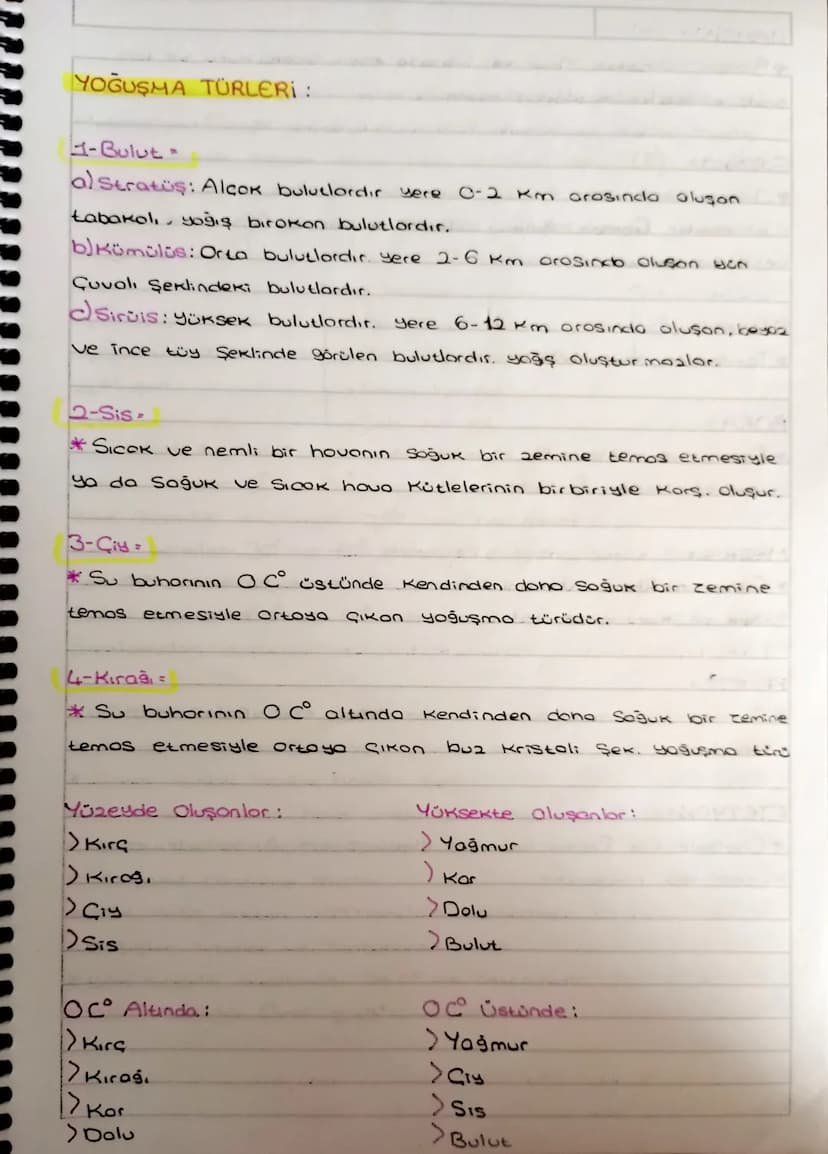 YOĞUŞMA TÜRLERİ :
1-Bulut =
a) Stratüş: Alçak bulutlardır yere 0-2 Km arasında oluşan
tabakalı, yağış bırakan bulutlardır.
b) Kümülüs: Orta bulutlardır. yere 2-6 Km arasında oluşan yün
Çuvalı Şeklindeki bulutlardır.
c) Sirüs: yüksek bulutlardır. yere 6-12 Km arasında oluşan, beyaz
ve ince tüy Şeklinde görülen bulutlardır. yağış oluşturmazlar.
2-Sis =
* Sıcak ve nemli bir havanın soğuk bir zemine temas etmesiyle
ya da Soğuk ve Sıcak hava Kütlelerinin birbiriyle Karş. oluşur.
3-Çiy =
* Su buharının 0 C° üstünde Kendinden daha Soğuk bir zemine
temas etmesiyle ortaya çıkan yoğuşma türüdür.
4-Kırağı =
* Su buharının 0 C° altında Kendinden daha Soğuk bir zemine
temas etmesiyle ortaya çıkan buz Kristali Şek. yoğuşma türü
Yüzeyde Oluşanlar :
> Kırç
> Kırağı
> Çiy
> Sis
Yüksekte Oluşanlar :
> Yağmur
> Kar
> Dolu
> Bulut
0 C° Altında :
> Kırç
> Kırağı
> Kar
> Dolu
0 C° Üstünde :
> Yağmur
> Çiy
> Sis
> Bulut